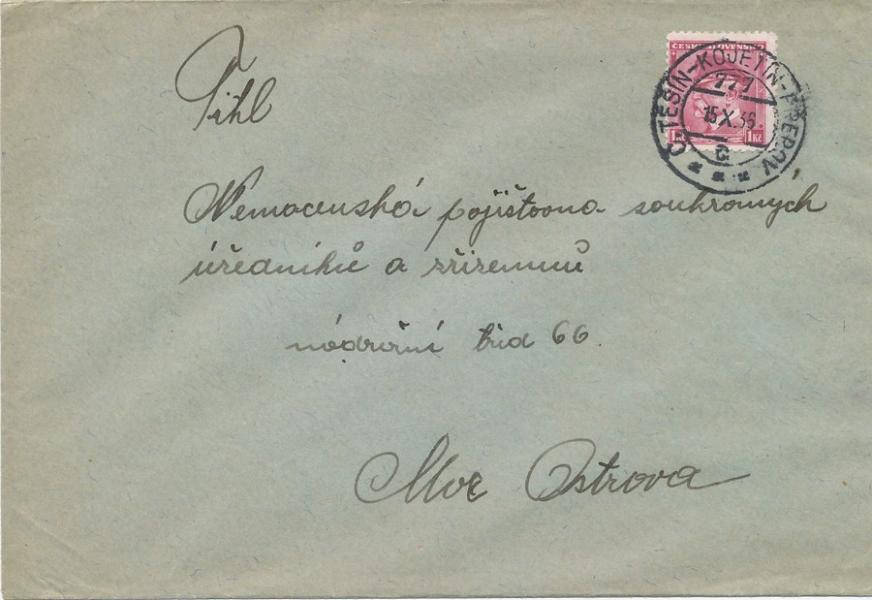 ČESKOSLOVENSKO
1 Kč 1 Kč
Č. TĚŠÍN-KOJETÍN-PŘEROV
721
15.X.36.
C
Titl
Nemocenská pojištovna soukromých
úředníků a zřízenců
nádražní třída 66.
Mor Ostrova